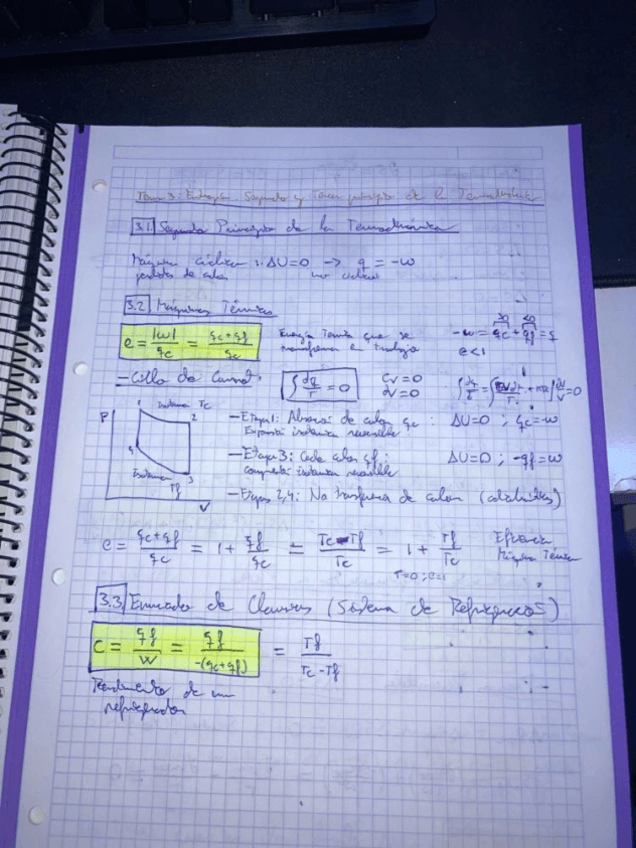 Tema 3: Entropía. Segundo y Tercer principio de la Termodinámica
3.1. Segundo Principio de la Termodinámica
Máquina cíclica : ΔU=0 → q = -w
3.2 Máquinas Térmicas
e = |w| / qc = (qc+qf) / qc
Energía Térmica que se transforma en trabajo
-w = qc + qf = q
>0 <0
e<1
- Ciclo de Carnot:
∫ dq/T = 0
dV=0
P
V
1
2
3
4
Isoterma Tc
Isoterma Tf
- Etapa 1: Absorción de calor qc : ΔU=0 ; qc=-w
Expansión isoterma reversible
- Etapa 3: Cede calor qf : ΔU=0 ; -qf=w
compresión isoterma reversible
- Etapas 2,4: No transferencia de calor (adiabáticas)
e = (qc+qf) / qc = 1 + qf/qc = (Tc-Tf) / Tc = 1 + Tf/Tc
Eficiencia
Máquina Térmica
3.3 Enunciado de Clausius (Sistema de Refrigeración)
C = qf / w = qf / -(qc+qf) = Tf / (Tc-Tf)
Rendimiento de un
refrigerador